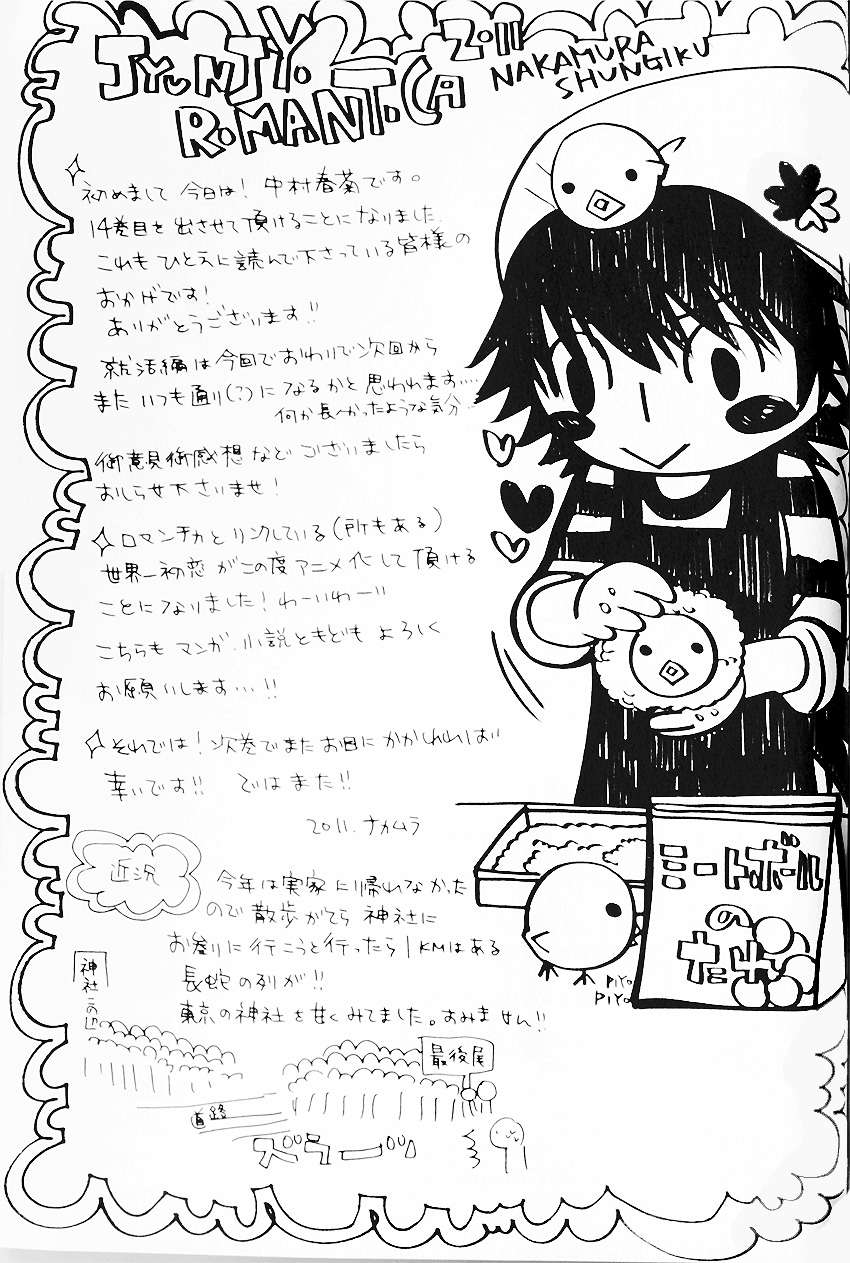 JYUNJYO
ROMANTICA
2011
NAKAMURA
SHUNGIKU
初めまして 今日は! 中村春菊です。
14巻目を出させて頂けることになりました。
これも ひとえに読んで下さっている皆様の
おかげです!
ありがとうございます!!
就活編は今回でおわりで次回から
また いつも通り(?)になるかと思われます…
何か長〜かったような気分…
御意見御感想など ございましたら
おしらせ下さいませ!
ロマンチカとリンクしている(所もある)
世界一初恋がこの度アニメ化して頂ける
ことになりました! わーいわーい
こちらも マンガ、小説ともども よろしく
お願いします…!!
それでは! 次巻でまたお目にかかれれば
幸いです!! ではまた!!
2011. ナカムラ
近況
今年は実家に帰れなかった
ので散歩がてら 神社に
お参りに行こうと行ったら 1KMはある
長蛇の列が!!
東京の神社を甘くみてました。すみません!!
神社このむこう
最後尾
道路
ズラーッ
ミートボール
の
たね
PIYO
PIYO